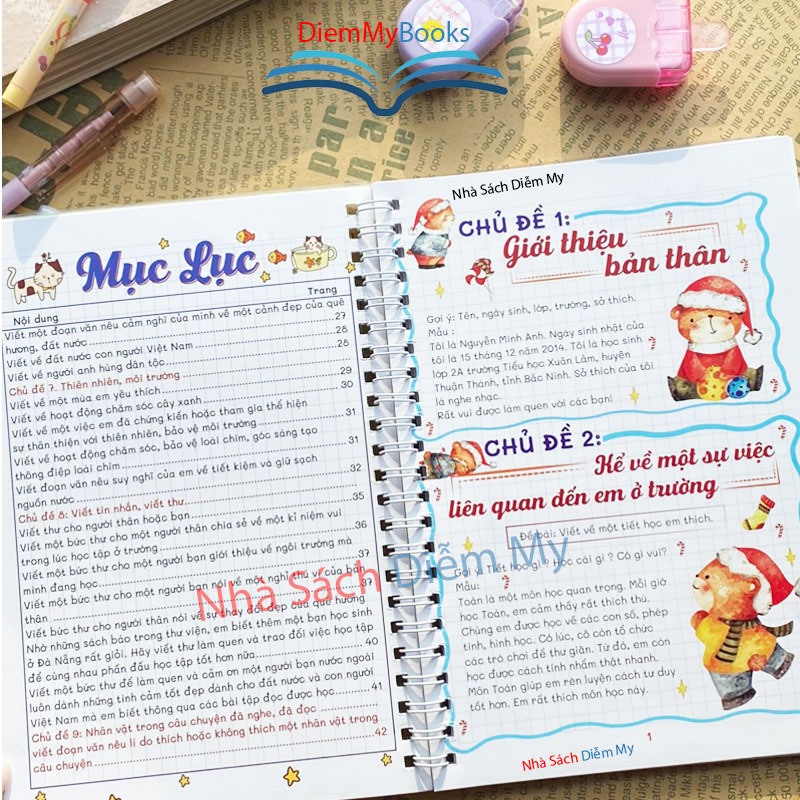 DiemMyBooks
Mục Lục
Nội dung Trang
Viết một đoạn văn nêu cảm nghĩ của mình về một cảnh đẹp của quê
hương, đất nước 27
Viết về đất nước con người Việt Nam 28
Viết về người anh hùng dân tộc 28
Chủ đề 7. Thiên nhiên, môi trường
Viết về một mùa em yêu thích 29
Viết về hoạt động chăm sóc cây xanh 30
Viết về một việc em đã chứng kiến hoặc tham gia thể hiện
sự thân thiện với thiên nhiên, bảo vệ môi trường 31
Viết về hoạt động chăm sóc, bảo vệ loài chim, góc sáng tạo
thông điệp loài chim 31
Viết đoạn văn nêu suy nghĩ của em về tiết kiệm và giữ sạch
nguồn nước 32
Chủ đề 8: Viết tin nhắn, viết thư
Viết thư cho người thân hoặc bạn 35
Viết một bức thư cho một người thân chia sẻ về một kỉ niệm vui
trong lúc học tập ở trường 36
Viết một bức thư cho một người bạn giới thiệu về ngôi trường mà
mình đang học 37
Viết một bức thư cho một người bạn nói về một nghỉ thú vị của bản
thân 37
Viết bức thư cho người thân nói về sự thay đổi đẹp của quê hương
Nhờ những sách báo trong thư viện, em biết thêm một bạn học sinh
ở Đà Nẵng rất giỏi. Hãy viết thư làm quen và trao đổi việc học tập
để cùng nhau phấn đấu học tập tốt hơn nữa 40
Viết một bức thư để làm quen và cảm ơn một người bạn nước ngoài
luôn dành những tình cảm tốt đẹp dành cho đất nước và con người
Việt Nam mà em biết thông qua các bài tập đọc được học 41
Chủ đề 9: Nhân vật trong câu chuyện đã nghe, đã đọc
viết đoạn văn nêu lí do thích hoặc không thích một nhân vật trong
câu chuyện 42
Nhà Sách Diễm My
CHỦ ĐỀ 1:
Giới thiệu
bản thân
Gợi ý: Tên, ngày sinh, lớp, trường, sở thích.
Mẫu :
Tôi là Nguyễn Minh Anh. Ngày sinh nhật của
tôi là 15 tháng 12 năm 2014. Tôi là học sinh
lớp 2A trường Tiểu học Xuân Lâm, huyện
Thuận Thành, tỉnh Bắc Ninh. Sở thích của tôi
là nghe nhạc.
Rất vui được làm quen với các bạn!
CHỦ ĐỀ 2:
Kể về một sự việc
liên quan đến em ở trường
Đề bài: Viết về một tiết học em thích.
Gợi ý: Tiết học gì ? Học cái gì ? Có gì vui?
Mẫu:
Toán là một môn học quan trọng. Mỗi giờ
học Toán, em cảm thấy rất thích thú.
Chúng em được học về các con số, phép
tính, hình học. Có lúc, cô còn tổ chức
các trò chơi để thư giãn. Từ đó, em còn
học được cách tính nhẩm thật nhanh.
Môn Toán giúp em rèn luyện cách tư duy
tốt hơn. Em rất thích môn học này.
Nhà Sách Diễm My
Nhà Sách Diễm My
1